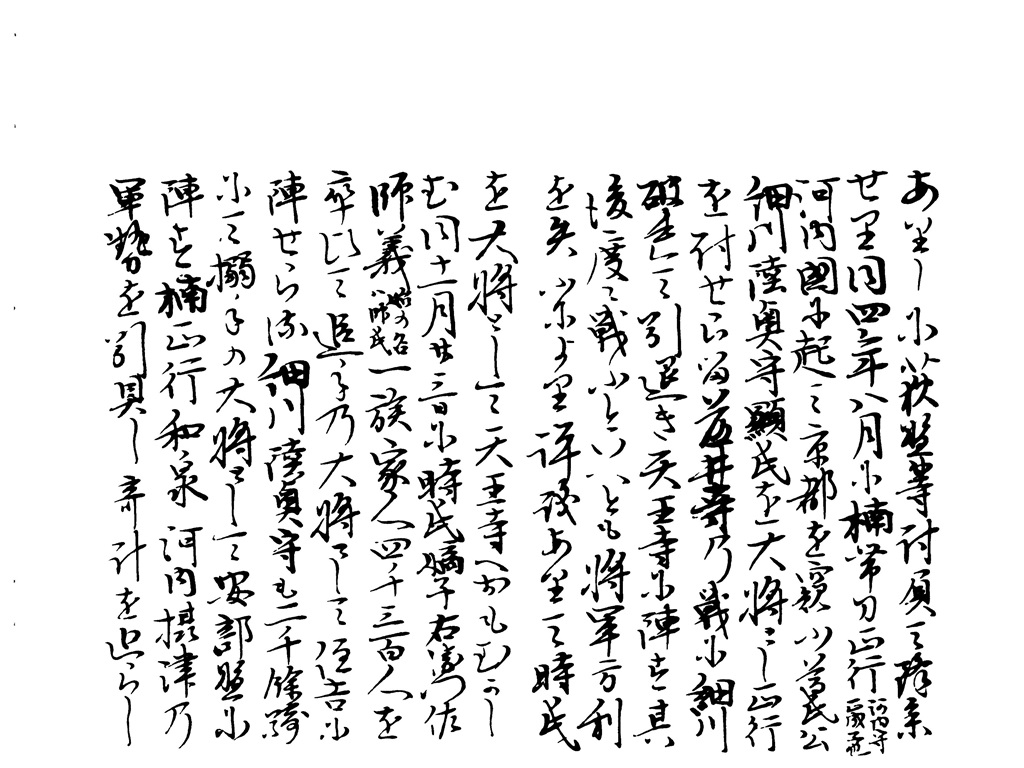 ありしに荻野等討負て降参
せり同四年八月に楠帯刀正行河内守正成子也
河内国に起て京都を窺ふ尊氏公
細川陸奥守顕氏を大将として正行
を討せらる藤井寺乃戦に細川
破れて引退き天王寺に陣す其
後度々戦ふといへとも将軍方利
を失ふにより評議ありて時氏
を大将として天王寺へおもむかし
む同十一月廿三日に時氏嫡子右衛門佐
師義始の名ハ師氏一族家人四千三百人を
率ゐて追手乃大将として住吉に
陣せらる細川陸奥守も二千餘騎
にて搦手の大将として安部野に
陣す楠正行和泉河内摂津乃
軍勢を引具し奇計を廻らし